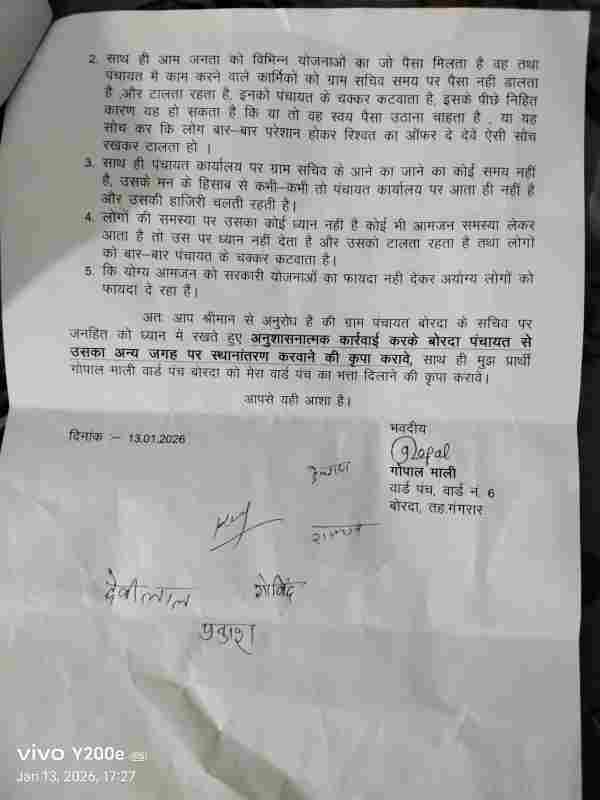 2. साथ ही आम जनता को विभिन्न योजनाओं का जो पैसा मिलता है वह तथा
पंचायत में काम करने वाले कार्मिकों को ग्राम सचिव समय पर पैसा नही डालता
है ,और टालता रहता है, इनको पंचायत के चक्कर कटवाता है, इसके पीछे निहित
कारण यह हो सकता है कि या तो वह स्वय पैसा उठाना चाहता है , या यह
सोच कर कि लोग बार–बार परेशान होकर रिश्वत का ऑफर दे देवें ऐसी सोच
रखकर टालता हो ।
3. साथ ही पंचायत कार्यालय पर ग्राम सचिव के आने का जाने का कोई समय नहीं
है, उसके मन के हिसाब से कभी–कभी तो पंचायत कार्यालय पर आता ही नहीं है
और उसकी हाजिरी चलती रहती है।
4. लोगों की समस्या पर उसका कोई ध्यान नही है कोई भी आमजन समस्या लेकर
आता है तो उस पर ध्यान नहीं देता है और उसको टालता रहता है तथा लोगो
को बार–बार पंचायत के चक्कर कटवाता है।
5. कि योग्य आमजन को सरकारी योजनाओं का फायदा नही देकर अयोग्य लोगों को
फायदा दे रहा हैं।
अतः आप श्रीमान से अनुरोध है की ग्राम पंचायत बोरदा के सचिव पर
जनहित को ध्यान में रखते हुए अनुशासनात्मक कार्रवाई करके बोरदा पंचायत से
उसका अन्य जगह पर स्थानांतरण करवाने की कृपा करावे, साथ ही मुझ प्रार्थी
गोपाल माली वार्ड पंच बोरदा को मेरा वार्ड पंच का भत्ता दिलाने की कृपा करावें।
आपसे यही आशा है।
दिनांक :– 13.01.2026
भवदीय
Gopal
गोपाल माली
वार्ड पंच, वार्ड नं. 6
बोरदा, तह.गंगरार
देवीलाल
गोविंद
प्रकाश
vivo Y200e 5G
Jan 13, 2026, 17:27